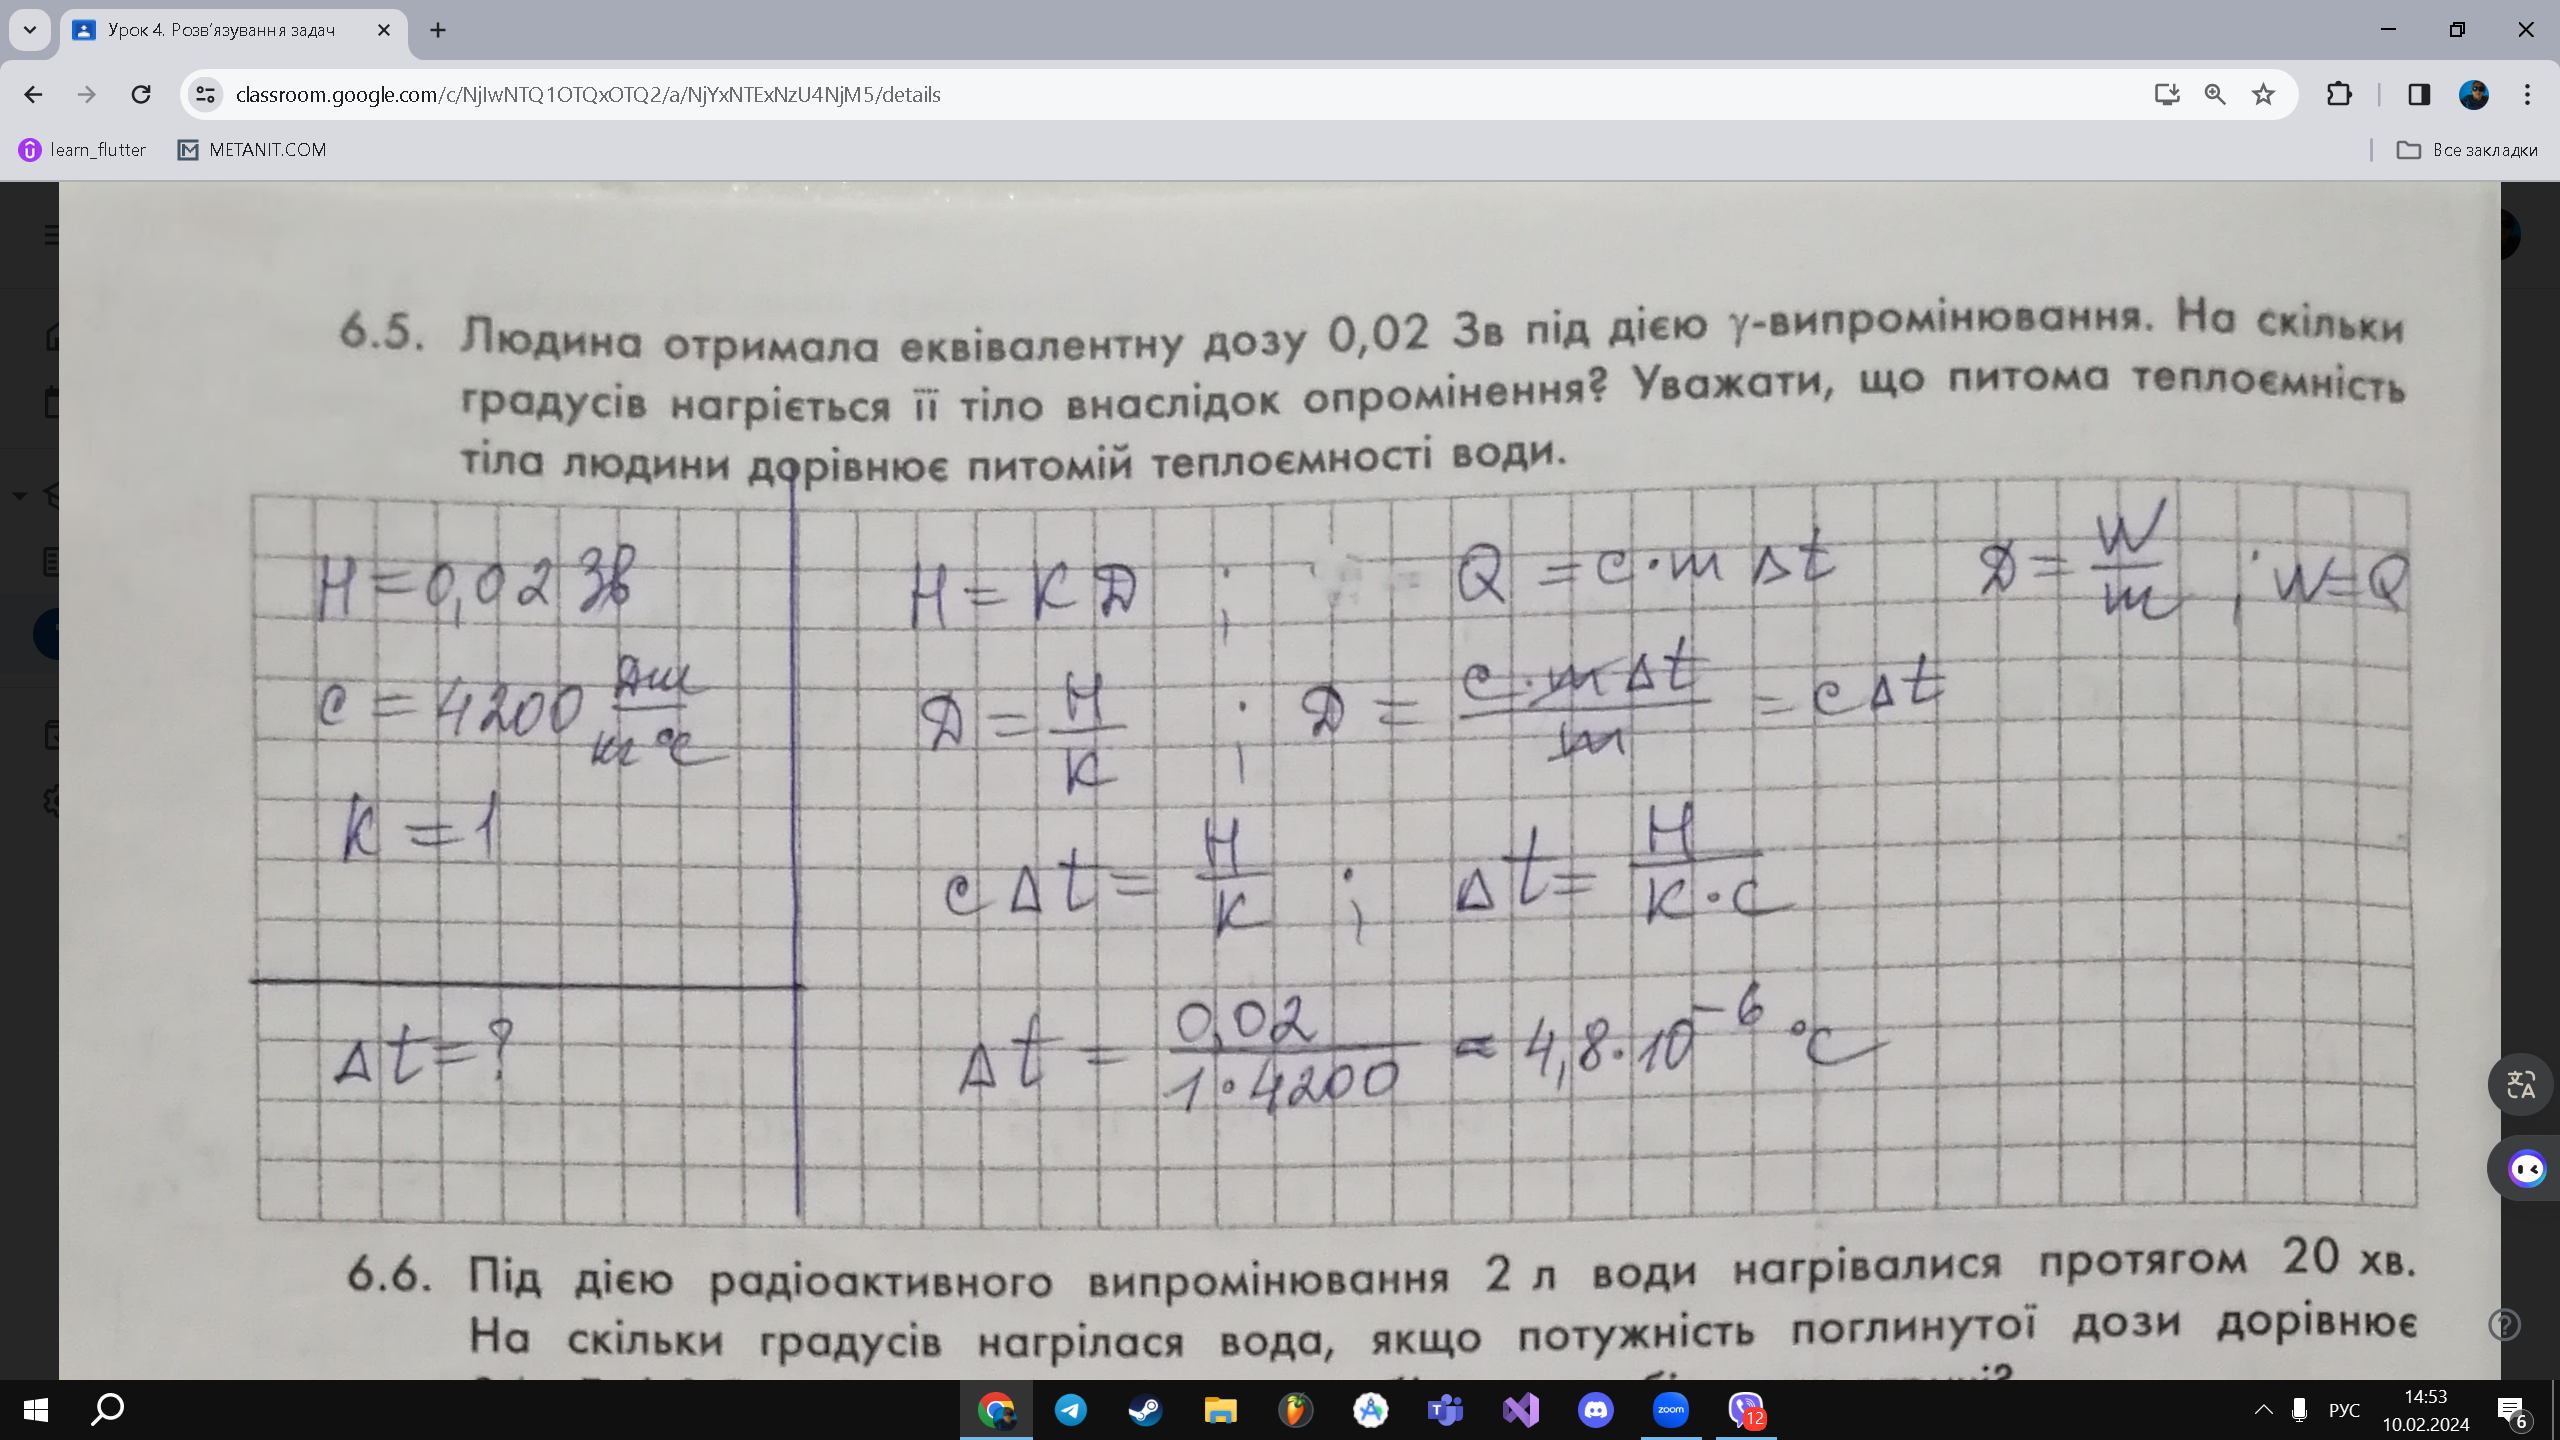 Урок 4. Розв’язування задач
classroom.google.com/c/NjIwNTQ1OTQxOTQ2/a/NjYxNTExNzU4NjM5/details
learn_flutter METANIT.COM Все закладки
6.5. Людина отримала еквівалентну дозу 0,02 Зв під дією γ-випромінювання. На скільки
градусів нагріється її тіло внаслідок опромінення? Уважати, що питома теплоємність
тіла людини дорівнює питомій теплоємності води.
H = 0,02 Зв H = K D ; Q = c·m Δt D = W/m ; W = Q
c = 4200 Дж/кг°C D = H/K ; D = c·mΔt/m = cΔt
K = 1 cΔt = H/K ; Δt = H/K·c
Δt = ? Δt = 0,02/1·4200 = 4,8·10⁻⁶ °C
6.6. Під дією радіоактивного випромінювання 2 л води нагрівалися протягом 20 хв.
На скільки градусів нагрілася вода, якщо потужність поглинутої дози дорівнює
zoom 12 РУС 14:53
10.02.2024 6